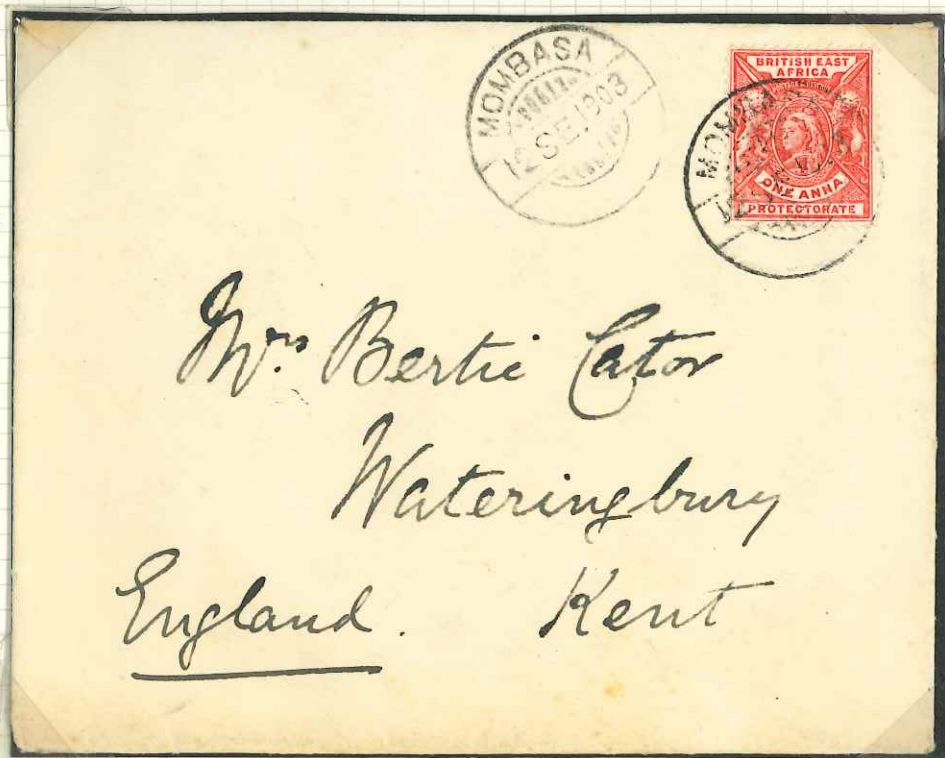 MOMBASA
12 SE 1903
BRITISH EAST
AFRICA
ONE ANNA
PROTECTORATE
MOMBASA
12
Mrs. Bertie Cator
Wateringbury
England. Kent